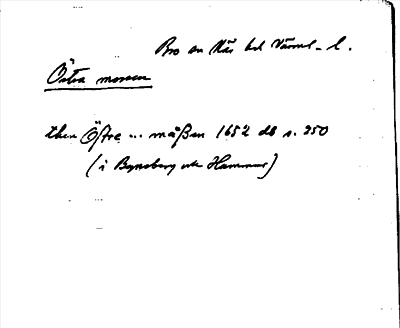 Bro sn Näs hd Värml. l.
Östra mossen
then Östre ... måßen 1652 db s. 350
(i Bynäberg utm Hammar)